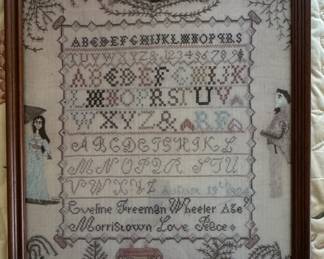 ABCDEFGHIJKLMNOPQRS
TUVWXYZ & 1234567890
ABCDEFGHIJK
LMNOPQRSTUV
WXYZ&
ABCDEFGHIJKL
MNOPQRSTU
VWXYZ August
Eveline Freeman Wheeler Age
Morristown Love Peace